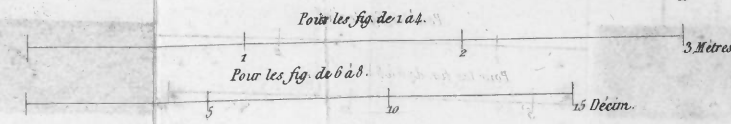 Pour les fig. de 1 à 4.
1 2 3 Mètres
Pour les fig. de 6 à 8.
5 10 15 Décim.